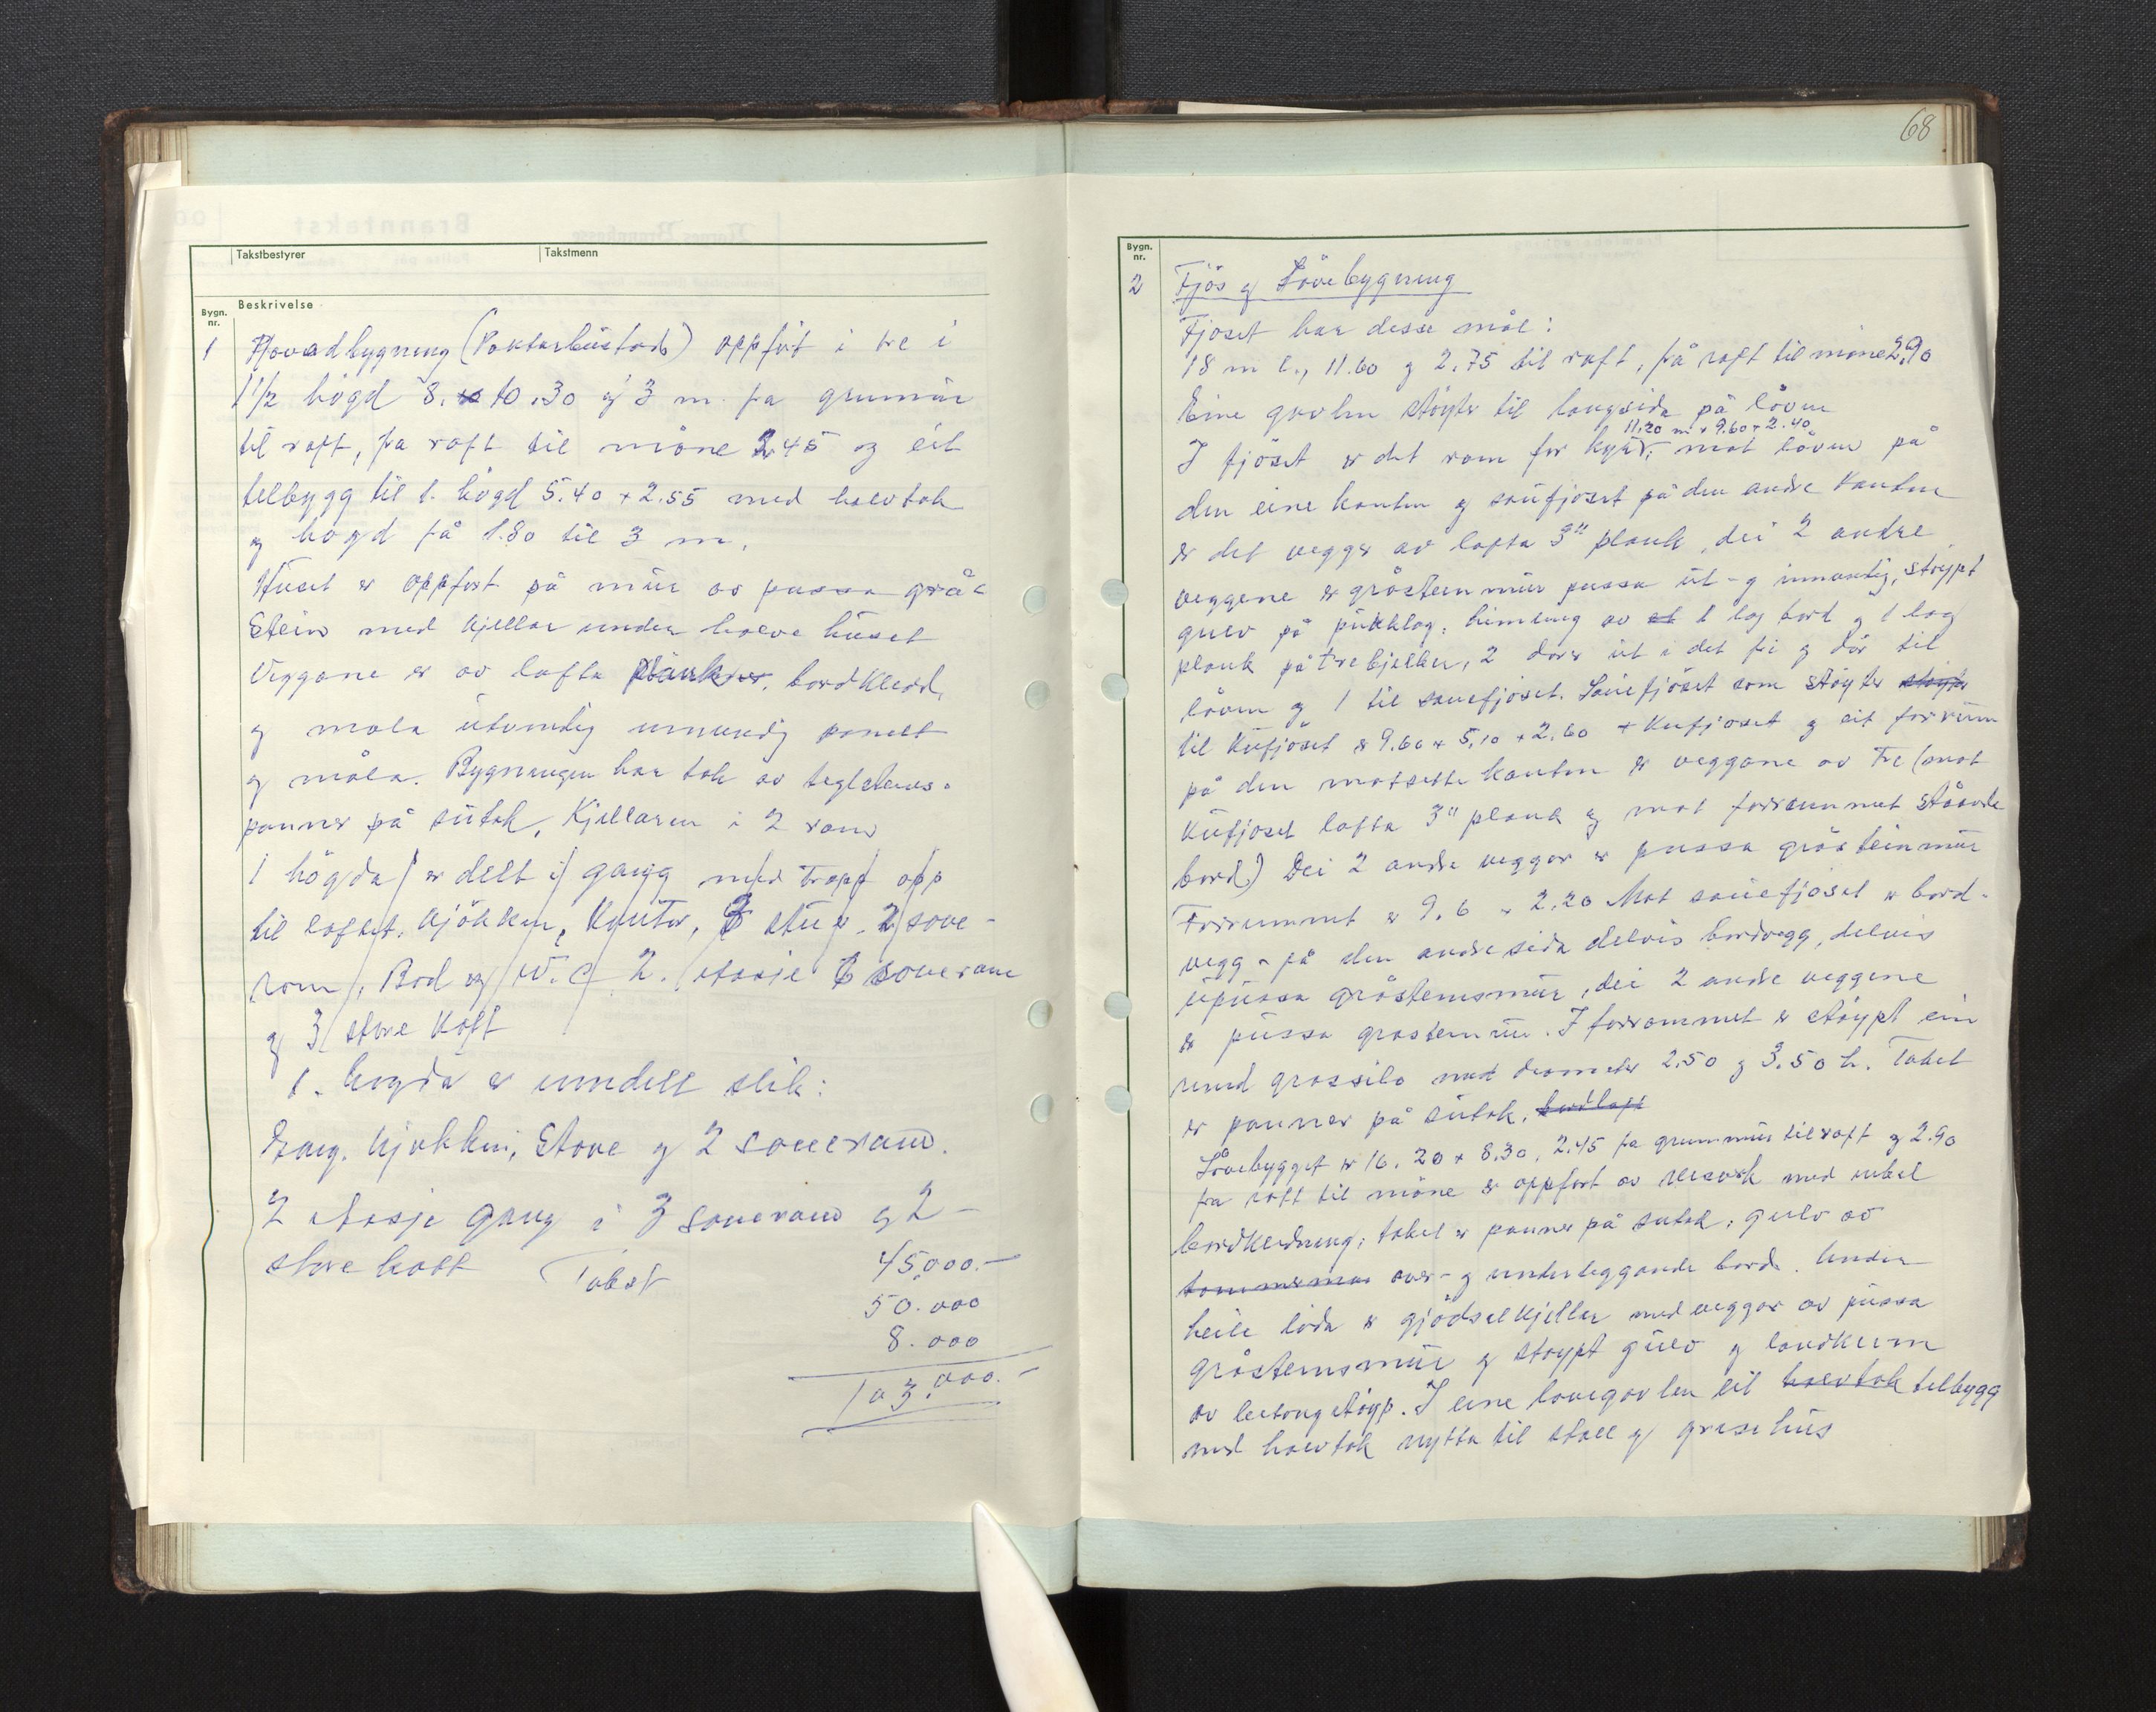 68
Takstbestyrer Takstmenn
Bygn. nr. Beskrivelse
1 Hovadbygning (Paktarbustad) oppført i tre i
1 1/2 högd 8. x 10.30 og 3 m. fra grunmur
til raft, fra raft til möne 3.45 og eit
tilbygg til 1. högd 5.40 + 2.55 med halvtak
og hogd på 1.80 til 3 m.
Huset er oppfort på mur av pussa grå-
stein med kjellar under halve huset
Veggane er av lafta plank, bordkledd,
og mala utvendig innvendig panelt
og måla. Bygningen har tak av teglsteins-
panner på sutak. Kjellaren i 2 rom
1 högda er delt i gang med trapp opp
til loftet, kjökken, kontor, 3 stuer, 2 sove-
rom, Bod og W.C 2. etasje 6 soverom
og 3 store kott
1. hogda er inndelt slik:
Gang, kjøkken, Stove og 2 soverom.
2 etasje gang i 3 soverom og 2 -
store kott Takst 45,000.-
50.000
8.000
103.000.-
Bygn. nr.
2 Fjös og Lövebygning
Fjoset har desse mål:
18 m l., 11.60 og 2.75 til raft, frå raft til möne 2.90
Eine gavlen støyter til langsida på löven
11.20 m x 9.60 + 2.40
I fjöset er det rom for kyr, mot löven på
den eine kanten og saufjoset på den andre kanten
er det vegger av lafta 3" plank, dei 2 andre
veggene er gråsteinmur pussa ut- og innvendig, støypt
gulv på pukklag, himling av 1 lag bord og 1 lag
plank på trebjelker, 2 dører ut i det fri og dör til
löven og 1 til sauefjoset. Sauefjöset som støyter støyter
til Kufjöset er 9.60 + 5.10 + 2.60 + Kufjoset og eit forrum
på den motsette kanten er veggane av tre (mot
Kufjoset lafta 3" plank og mot forrummet ståande
bord) Dei 2 andre veggar er pussa gråsteinmur
Forrummet er 9.6 x 2.20 Mot sauefjoset er bord-
vegg - på den andre sida delvis bordvegg, delvis
upussa gråsteinsmur, dei 2 andre veggene
er pussa gråsteinmur. I forrommet er støypt ein
rund grassilo med diameter 2.50 og 3.50 h. Taket
er panner på sutak. bordlagt
Lövebygget er 16.20 x 8.30, 2.45 fra grunnmur til raft og 2.90
fra raft til möne er oppfort av reisverk med enkel
bordkledning; taket er panner på sutak; gulv av
over- og underliggande bord. Under
heile löda er gjödselkjeller med veggar av pussa
gråsteinsmur og støypt gulv og landkum
av betongstøyp. I eine lovegavlen eit halvtak tilbygg
med halvtak nytta til stall og grisehus